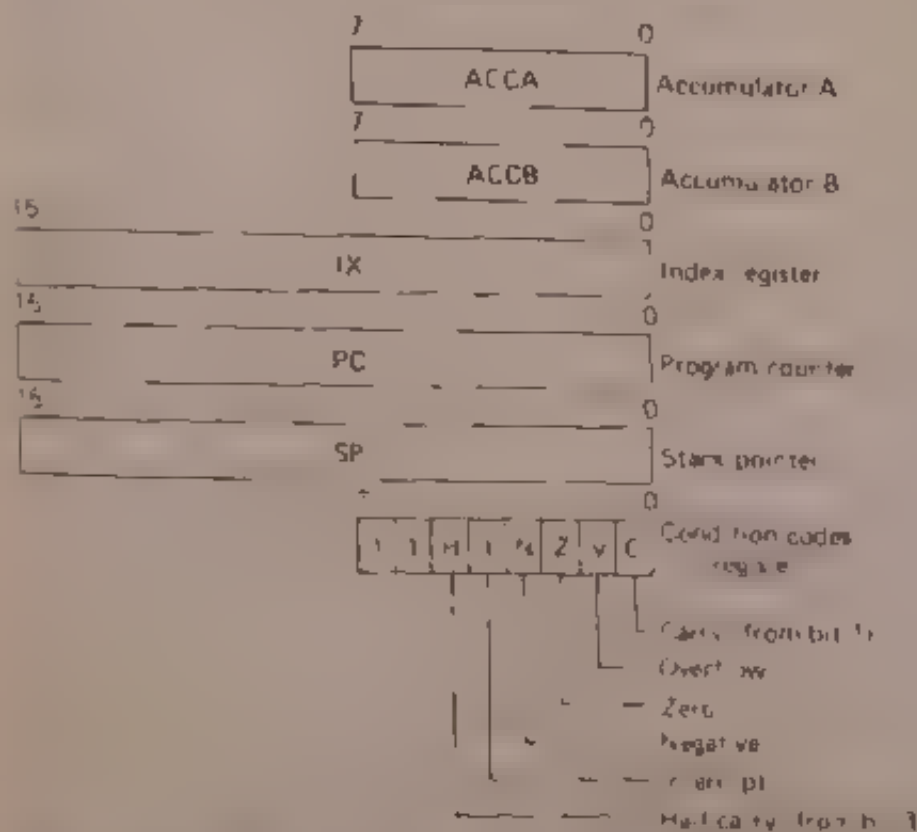 7 0
ACCA Accumulator A
7 0
ACCB Accumulator B
15 0
IX Index register
15 0
PC Program counter
15 0
SP Stack pointer
0
1 1 H I N Z V C Condition codes
register
Carry (from bit 7)
Overflow
Zero
Negative
Interrupt
Half carry (from bit 3)